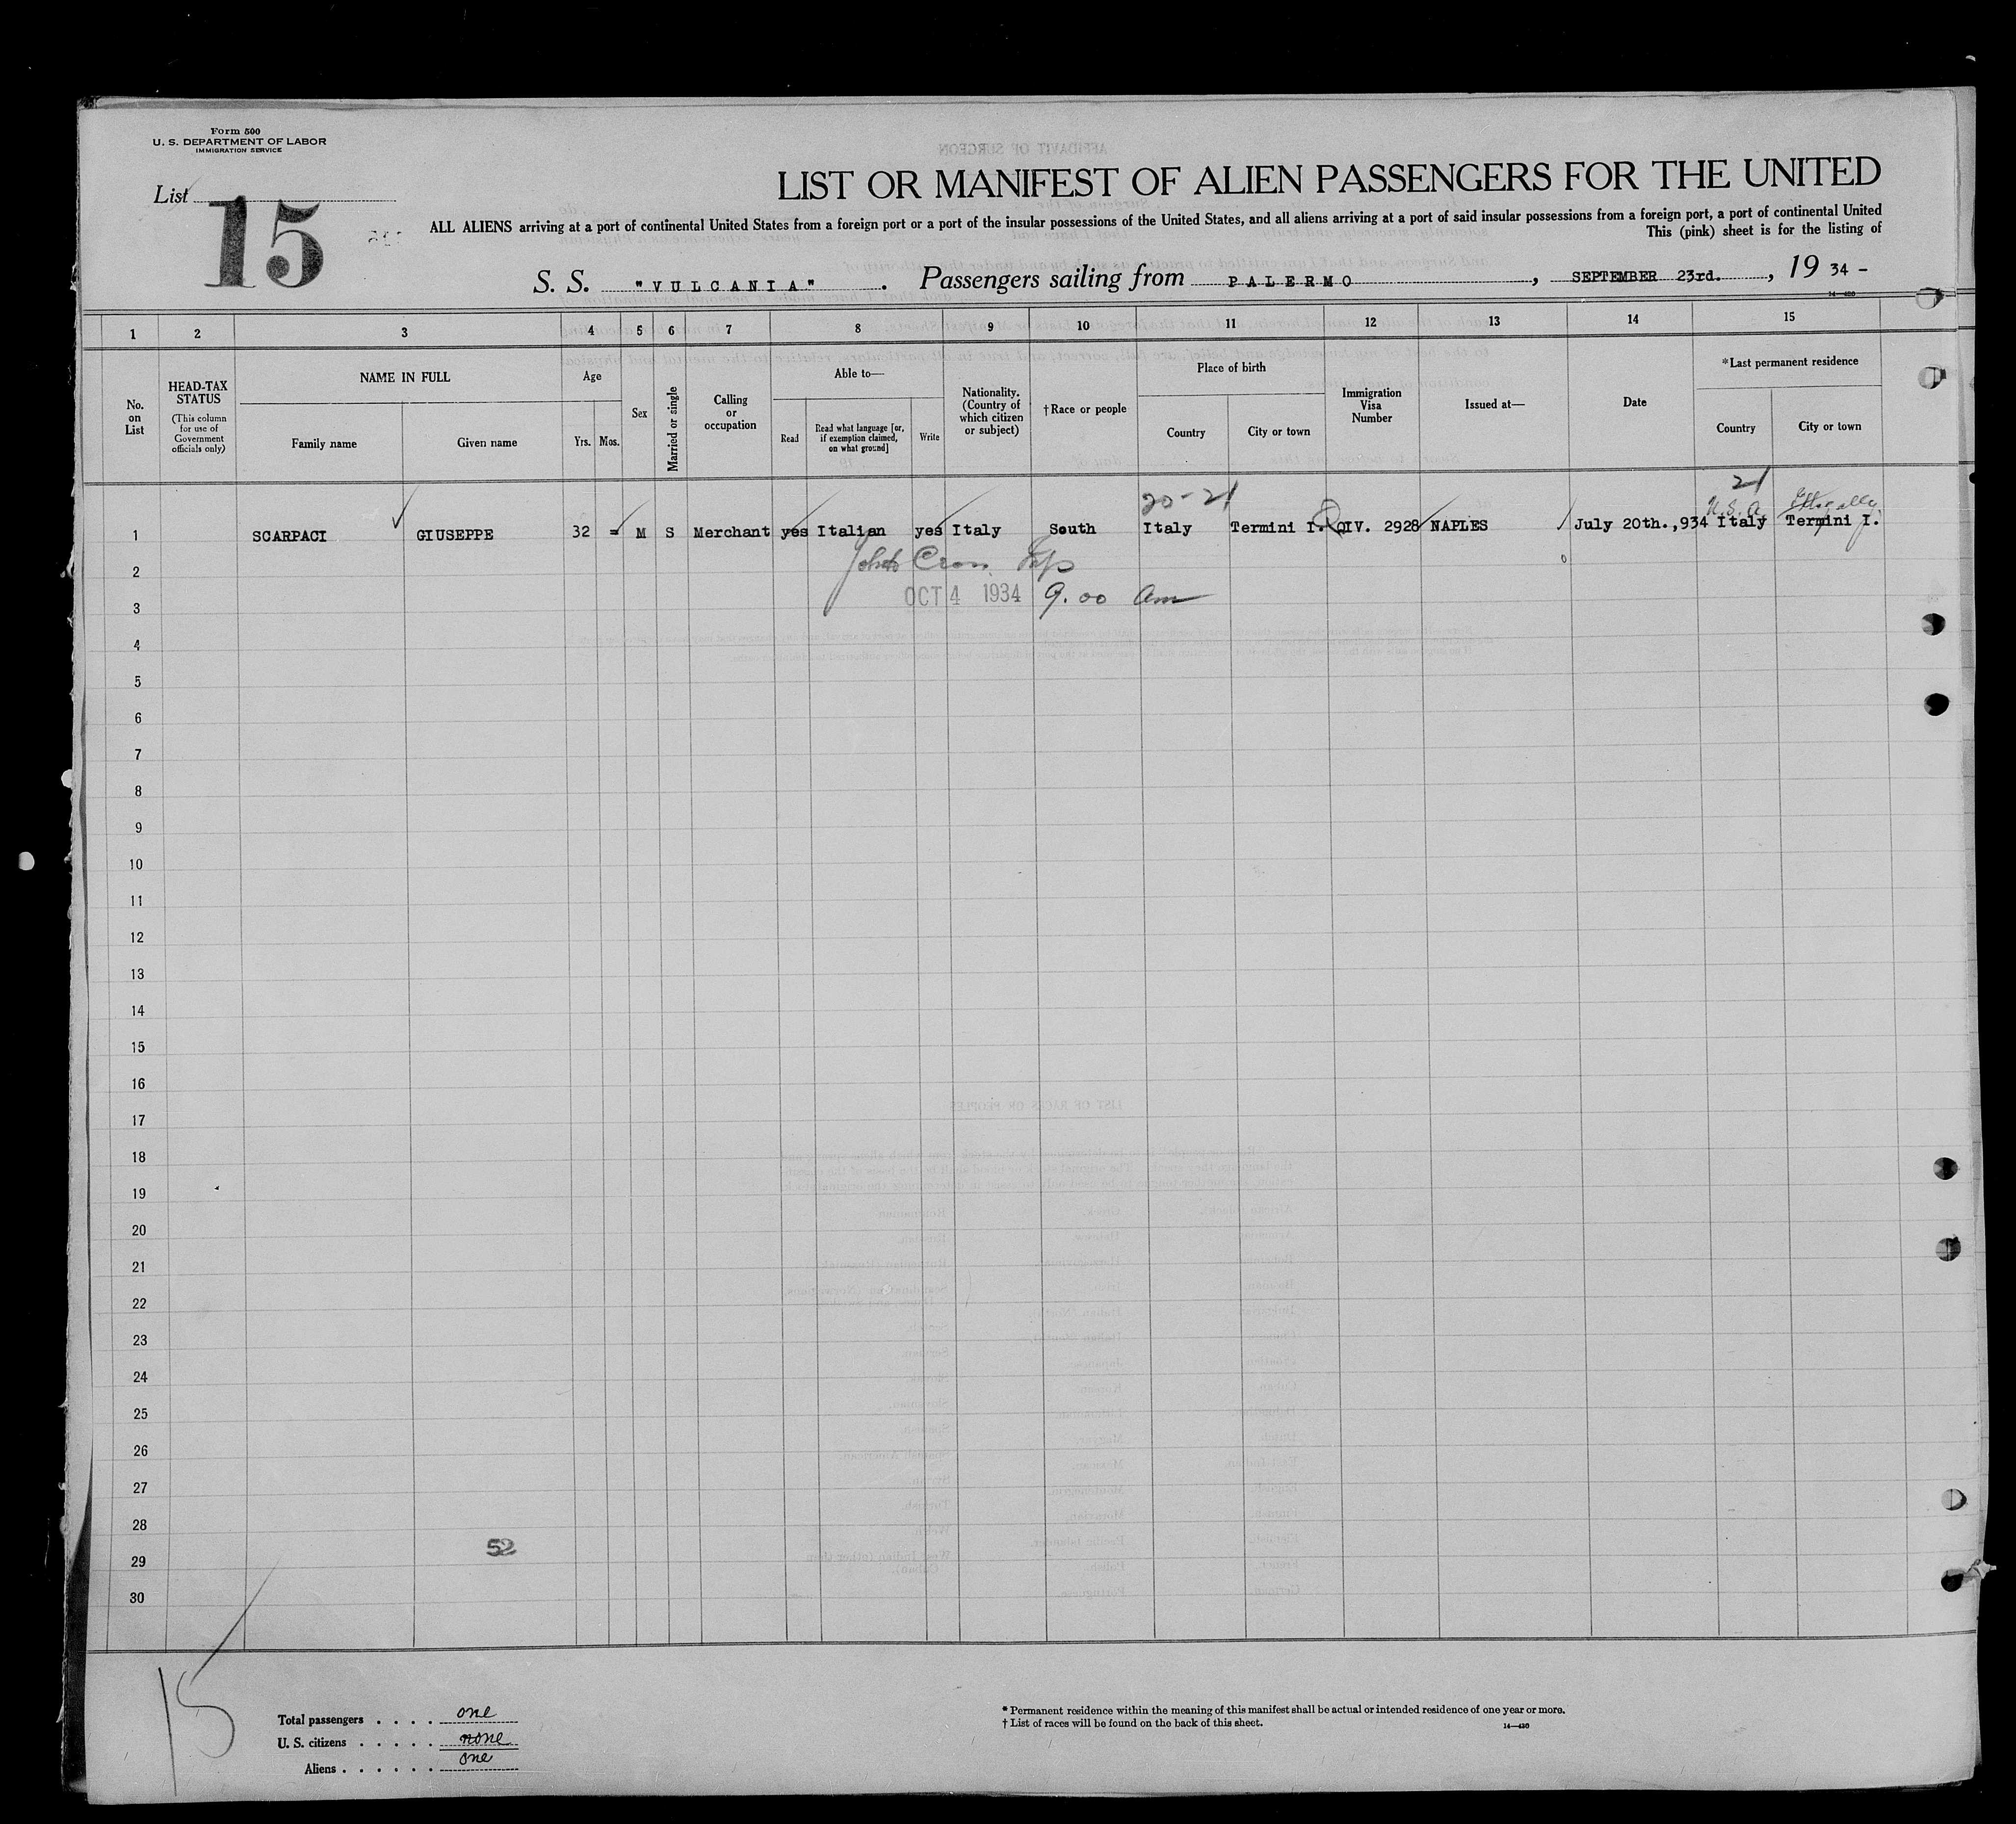 Form 500
U. S. DEPARTMENT OF LABOR
IMMIGRATION SERVICE
List
15
AFFIDAVIT OF SURGEON
LIST OR MANIFEST OF ALIEN PASSENGERS FOR THE UNITED
ALL ALIENS arriving at a port of continental United States from a foreign port or a port of the insular possessions of the United States, and all aliens arriving at a port of said insular possessions from a foreign port, a port of continental United
This (pink) sheet is for the listing of
S. S. "VULCANIA". Passengers sailing from PALERMO, SEPTEMBER 23rd., 19 34 -
14—430
1 2 3 4 5 6 7 8 9 10 11 12 13 14 15
No. on List
HEAD-TAX STATUS
(This column for use of Government officials only)
NAME IN FULL
Family name
Given name
Age
Yrs.
Mos.
Sex
Married or single
Calling or occupation
Able to—
Read
Read what language [or, if exemption claimed, on what ground]
Write
Nationality. (Country of which citizen or subject)
†Race or people
Place of birth
Country
City or town
Immigration Visa Number
Issued at—
Date
*Last permanent residence
Country
City or town
20-21
21
U.S.A.
1 SCARPACI GIUSEPPE 32 = M S Merchant yes Italian yes Italy South Italy Termini I. QIV. 2928 NAPLES July 20th.,934 Italy Termini I.
2
OCT 4 1934 9.00 am
3
4
5
6
7
8
9
10
11
12
13
14
15
16
17
LIST OF RACES OR PEOPLES
18
19
20
21
22
23
24
25
26
27
28
52
29
30
15
Total passengers . . . . one
U. S. citizens . . . . . none
Aliens . . . . . . one
* Permanent residence within the meaning of this manifest shall be actual or intended residence of one year or more.
† List of races will be found on the back of this sheet.
14—430